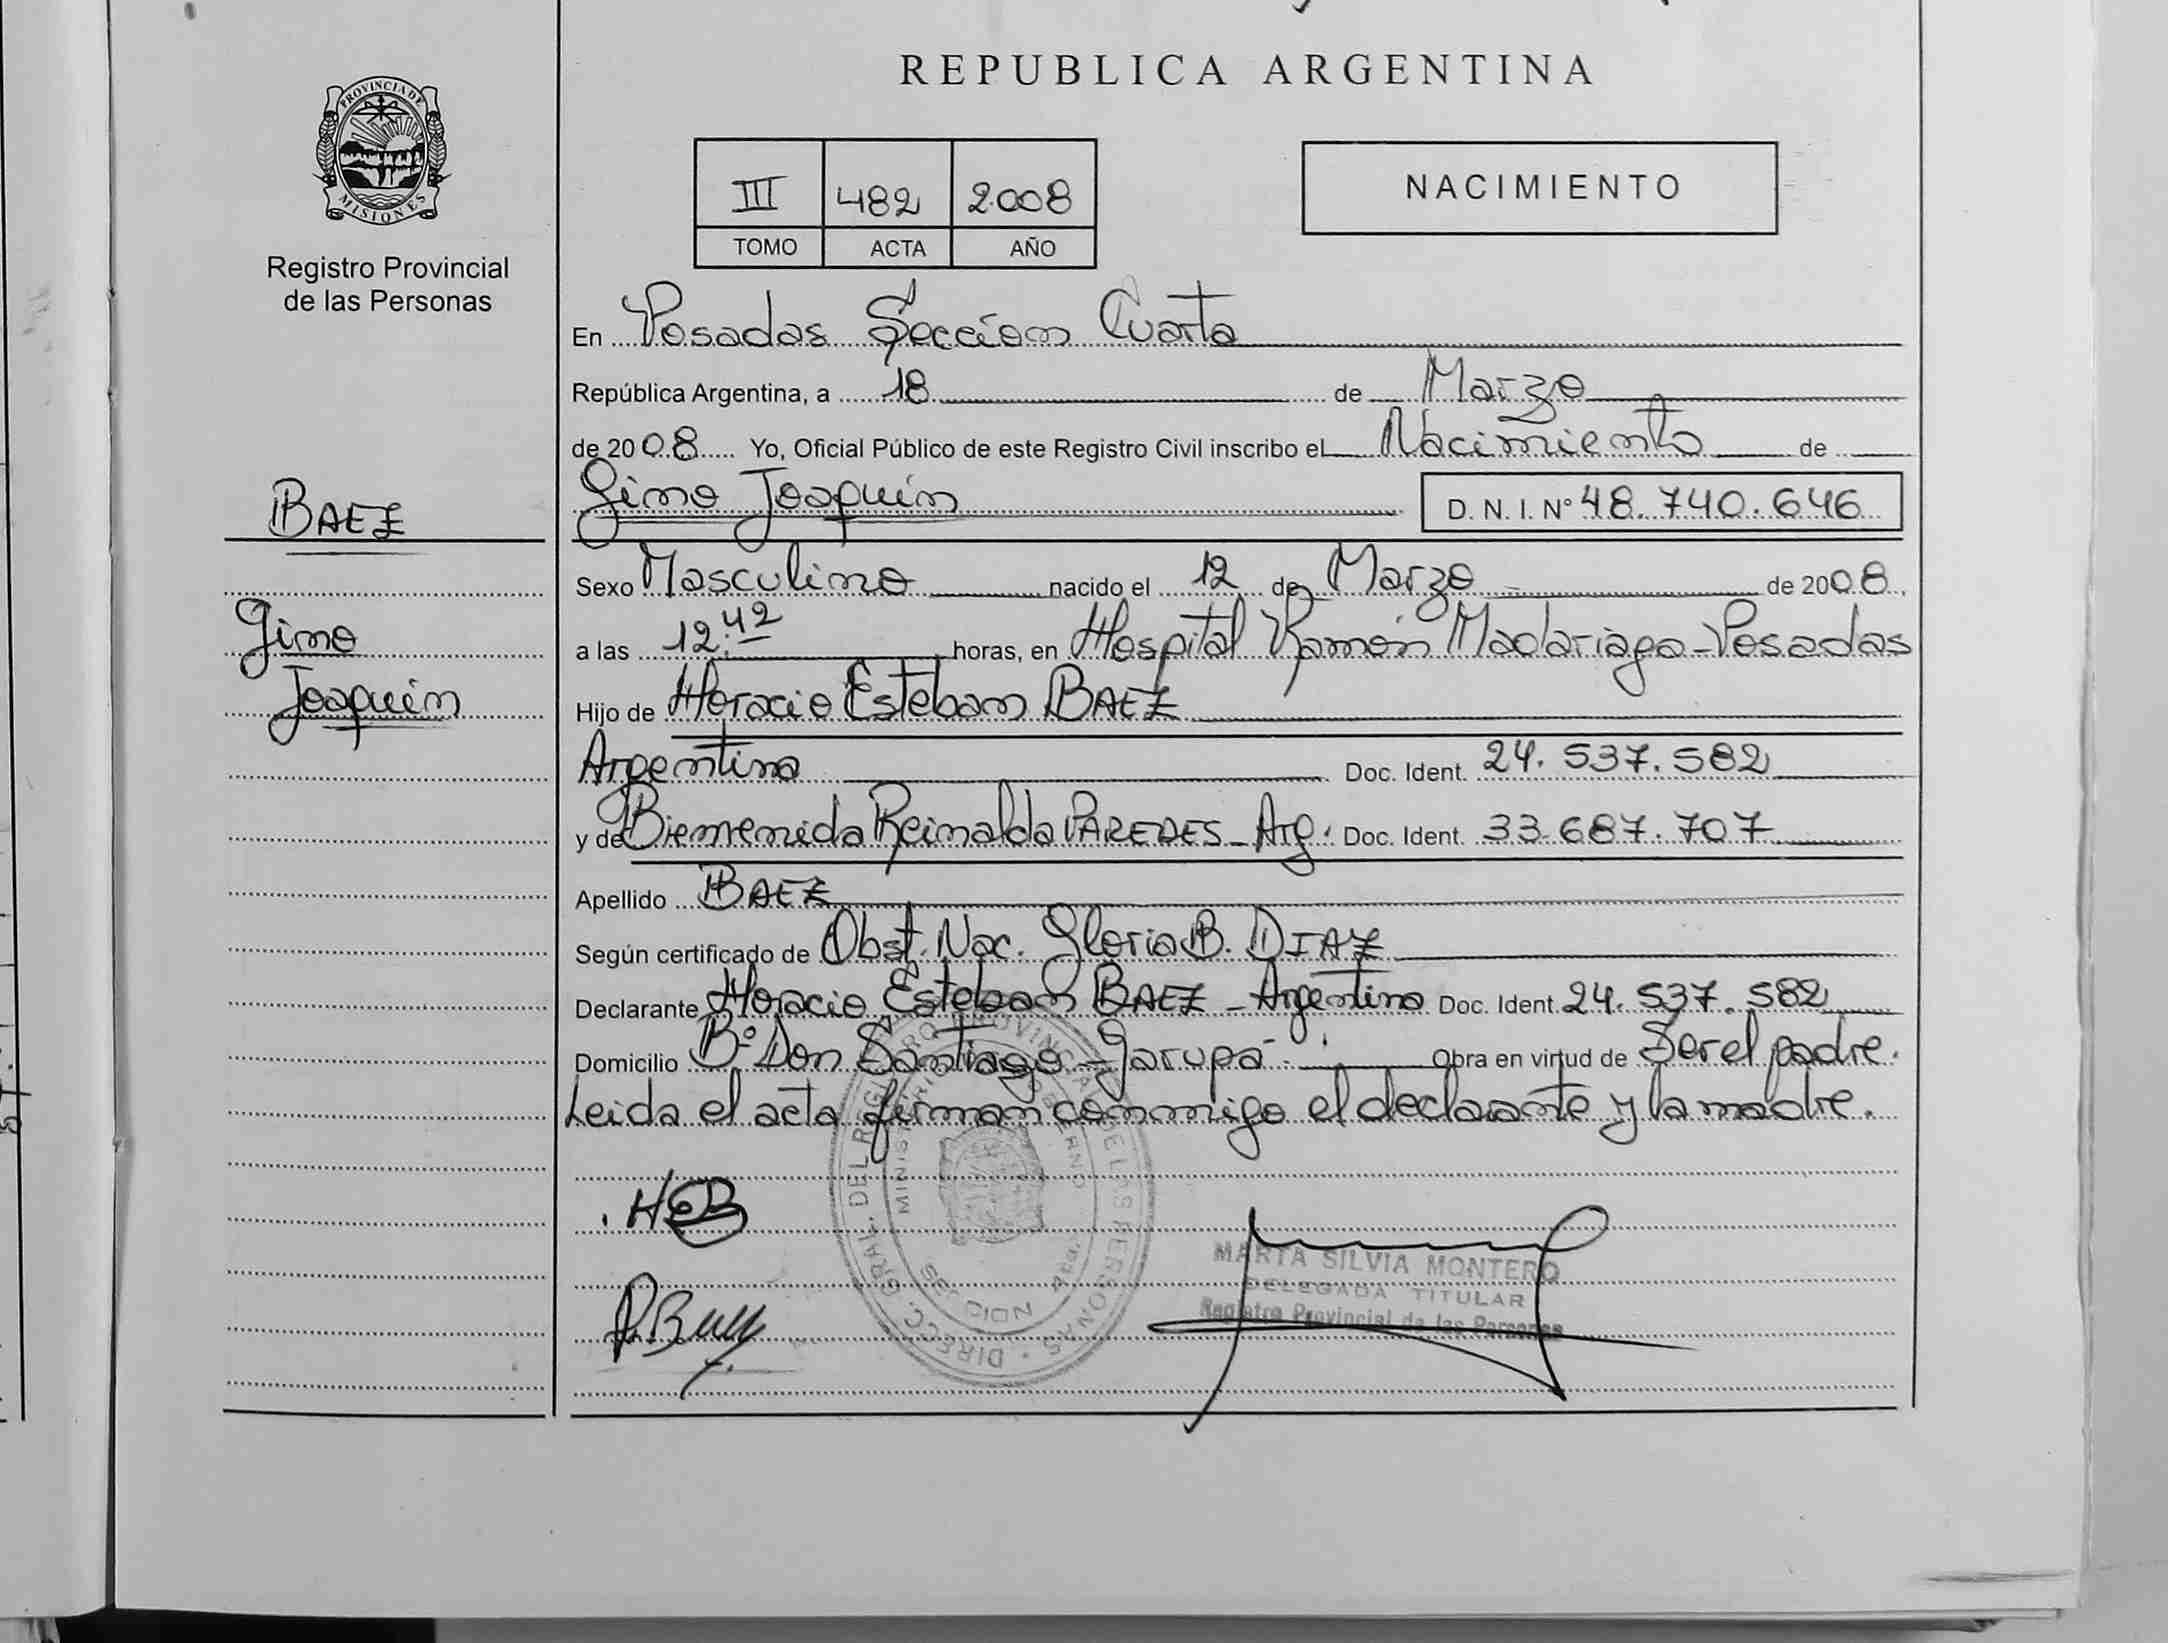 REPUBLICA ARGENTINA
PROVINCIA DE
MISIONES
Registro Provincial
de las Personas
III 482 2008
TOMO ACTA AÑO
NACIMIENTO
En Posadas Sección Cuarta
República Argentina, a 18 de Marzo
de 2008 Yo, Oficial Público de este Registro Civil inscribo el Nacimiento de
BAEZ
Gino Joaquín D. N. I. N° 48.740.646
Sexo Masculino nacido el 12 de Marzo de 2008,
Gino
a las 12:42 horas, en Hospital Ramón Madariaga - Posadas
Joaquín
Hijo de Horacio Esteban BAEZ
Argentino Doc. Ident. 24.537.582
y de Bienvenida Reinalda PAREDES - Arg. Doc. Ident. 33.687.707
Apellido BAEZ
Según certificado de Obst. Nac. Gloria B. DIAZ
Declarante Horacio Esteban BAEZ - Argentino Doc. Ident. 24.537.582
Domicilio B° Don Santiago - Garupá - Obra en virtud de Ser el padre.
Leida el acta firman conmigo el declarante y la madre.
HEB
DIRECC. GRAL. DEL REGISTRO PROVINCIAL DE LAS PERSONAS
MARTA SILVIA MONTERO
DELEGADA TITULAR
Registro Provincial de las Personas